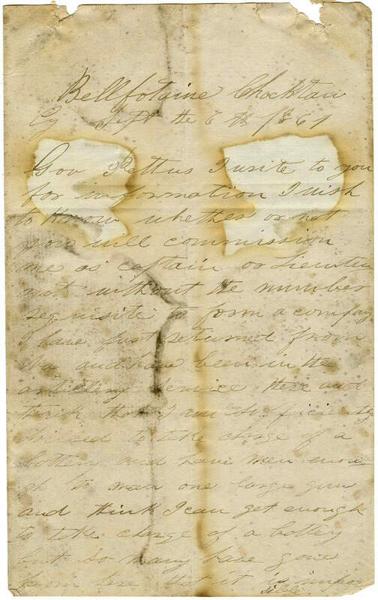 Bellfotaine Chocktaw
Cy Sept the 6 th 1861
Gov Pettus I write to you
for information I wish
to know whether or not
you will commission
me as captain or Lieuten
nat without the number
requisite to form a compay
I have just returned from
and have been in the
service there and
think that I am sufficiently
to take charge of a
battery and have men enou
gh to man one large gun
and think I can get enough
to take charge of a battery
but so many have gone
from here that it is impos
sible